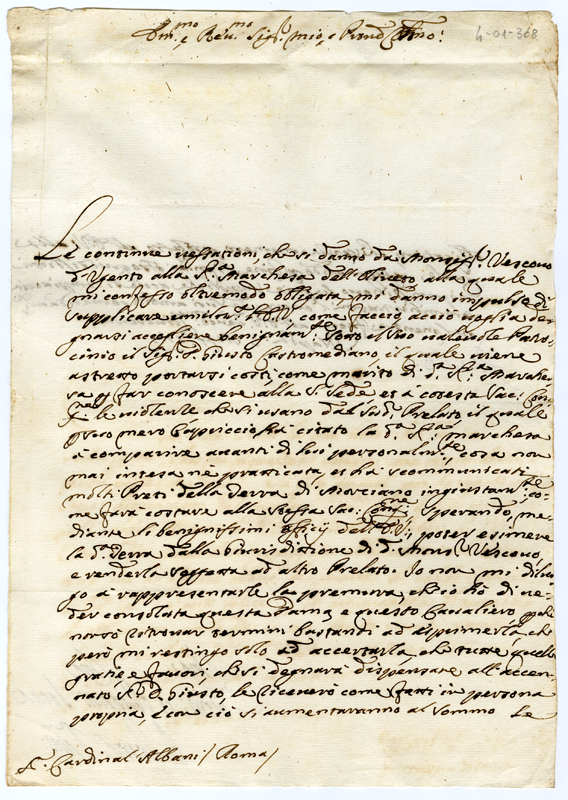 Em.mo e Reu.mo Sig.r mio, e Pron Col.mo:
4-01-368
Le continue uessationi, che si danno da Monsig.r Vescouo
d'Vgento alla S.ra Marchesa dell'Oliueto alla quale
mi confesso oltremodo obligata, mi danno impulso di
supplicare l'E.V. come faccio, acciò uoglia de
gnarsi accogliere benignam.te sotto il suo ualeuole Patro
cinio il Sig.r D. Giusto Castromediano, il quale uiene
astretto portarsi costì, come marito di d.a S.ra Marche
sa p far conoscere alla S. Sede et a cotesta Sac: Con
g.ne le uiolenze che si usano dal sud.o Prelato il quale
p suo mero Capriccio, hà citato la d.a S.ra Marchesa
à comparire auanti di lui personalm.te, cosa non
mai intesa nè pratticata, et hà scommunicati
molti Preti della Terra di Morciano ingiustam.te co
me farà costare alla stessa Sac: Cong.ne sperando, me
diante li benignissimi officij dell'E.V., poter esimere
la d.a Terra dalla giurisditione di d.o Mons.r Vescouo,
e renderla soggetta ad altro Prelato. Io non mi dilun
go à rappresentarle la premura, che io hò di ue
der consolata questa Dama, e questo Caualiero, p che
non sò ritrouar termini bastanti ad esprimerla, che
però mi restingo solo ad accertarla, che tutte quelle
gratie e fauori, che si degnarà dispensare all'accen
nato S.r D. Giusto, le riceuerò come fatti in persona
propria, e con ciò si aumentaranno al sommo le
S.r Cardinal Albani / Roma /